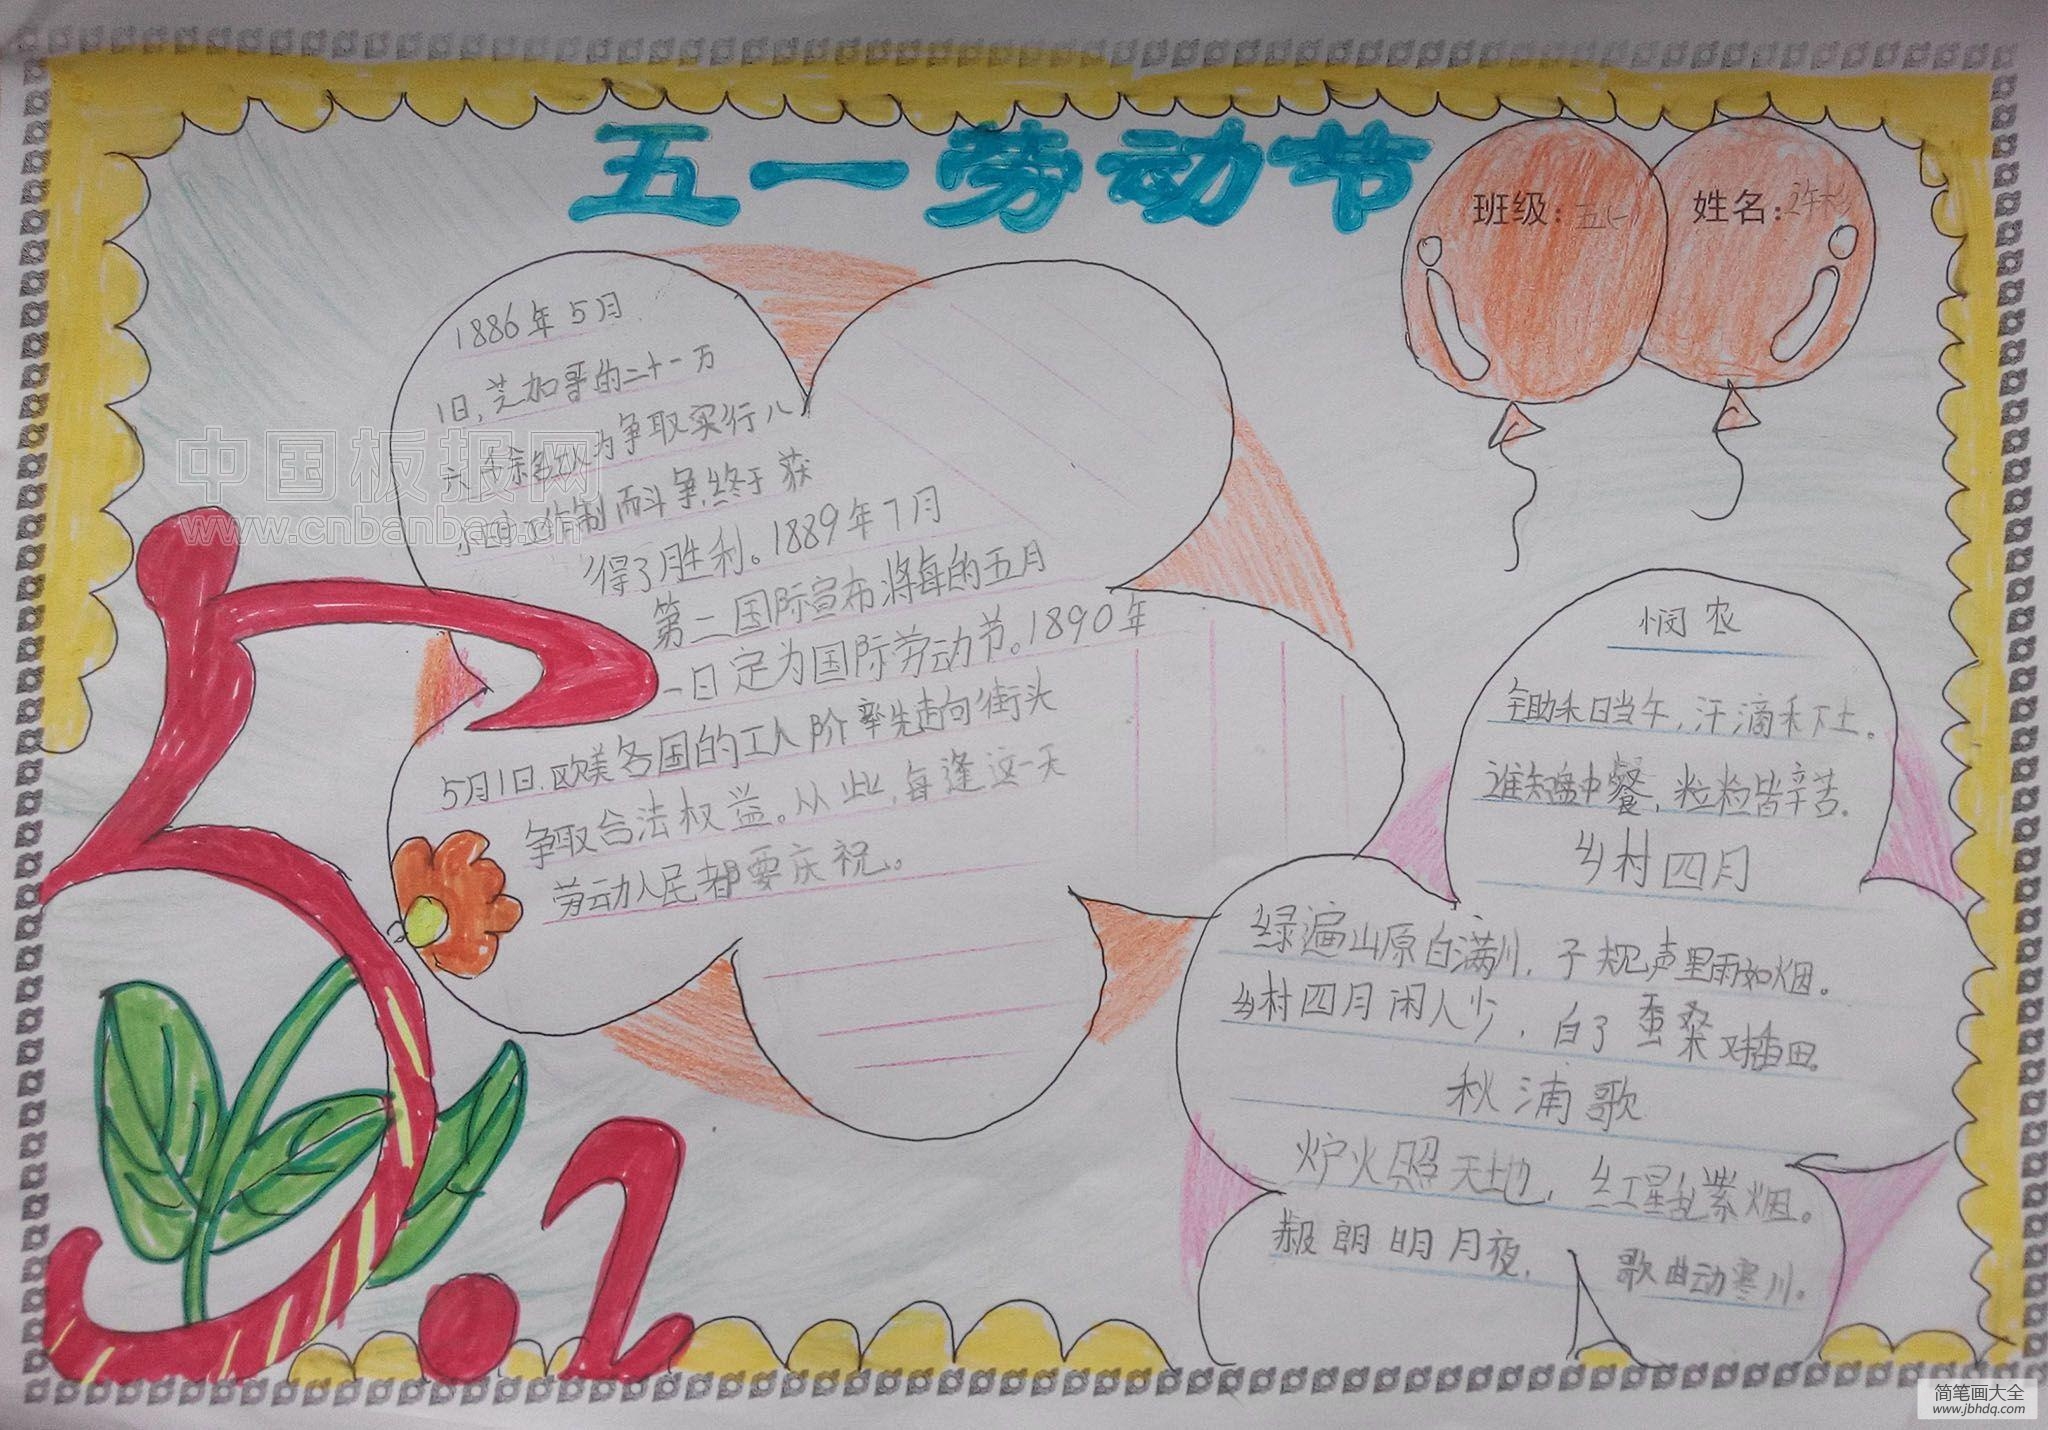 五一劳动节
班级：五(一)
姓名：许
1886年5月
1日，芝加哥的二十一万
六千余名工人为争取实行八
小时工作制而斗争，终于获
得了胜利。1889年7月
第二国际宣布将每的五月
一日定为国际劳动节。1890年
5月1日，欧美各国的工人阶率先走向街头
争取合法权益。从此，每逢这一天
劳动人民都要庆祝。
悯农
锄禾日当午，汗滴禾下土。
谁知盘中餐，粒粒皆辛苦。
乡村四月
绿遍山原白满川，子规声里雨如烟。
乡村四月闲人少，白了蚕桑对插田。
秋浦歌
炉火照天地，红星乱紫烟。
赧郎明月夜，歌曲动寒川。
中国板报网
www.cnbanbao.cn
5.1
简笔画大全
www.jbhdq.com